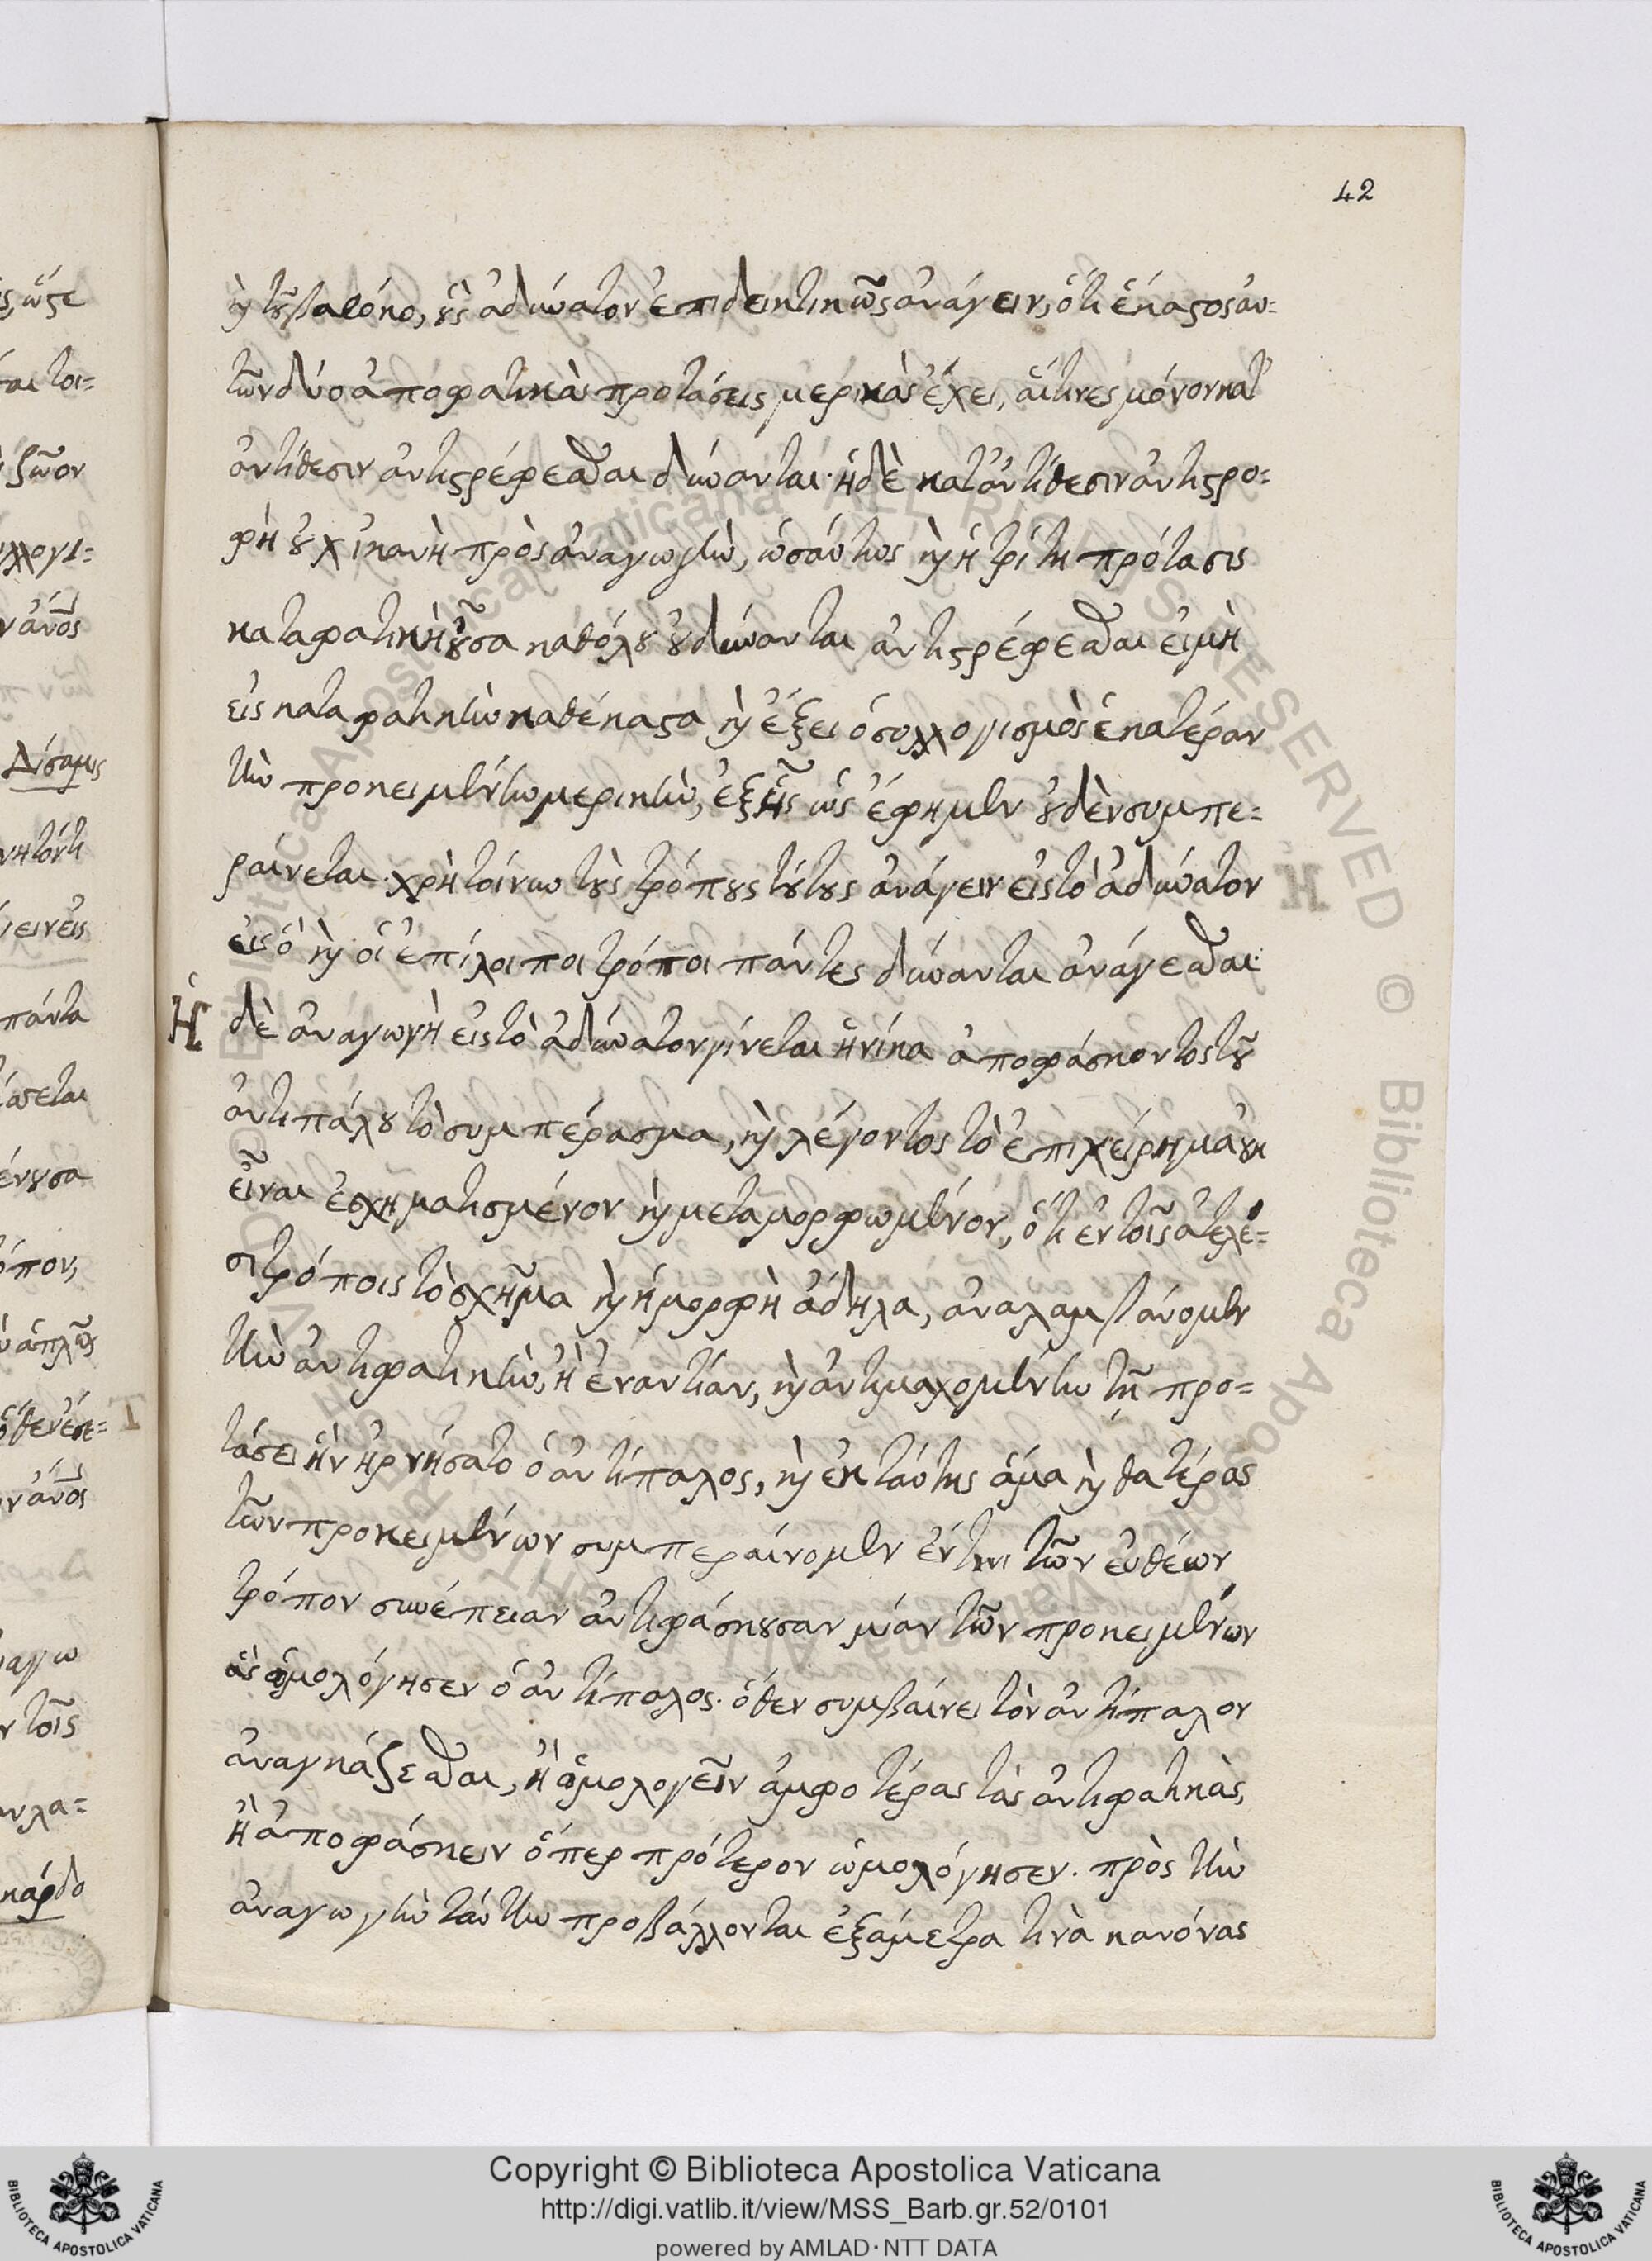 42
ς, ὥστε
ται τοι=
ζῶον
υλλογι=
ν ἄνος
Δίσαμις
νητόν τι
γειν εἰς
πάντα
άσεται
ένουσα
όπον,
ἁπλῶς
ὅθεν ἔσε=
ν ἄνος
αγω
ν τοῖς
υλα=
κάρδο
καὶ τοῦ βαρόκο, οὓς ἀδύνατον ἐπιδεικτικῶς ἀνάγειν, ὅτι ἕκαστος αὐ=
τῶν δύο ἀποφατικὰς προτάσεις μερικὰς ἔχει, αἵτινες μόνον κατ'
ἀντίθεσιν ἀντιστρέφεσθαι δύνανται· ἡ δὲ κατ' ἀντίθεσιν ἀντιστρο=
φὴ οὐχ ἱκανὴ πρὸς ἀναγωγὴν, ὡσαύτως καὶ ἡ τρίτη πρότασις
καταφατικὴ οὖσα καθόλου οὐ δύνανται ἀντιστρέφεσθαι εἰ μὴ
εἰς καταφατικὴν καθέκαστα καὶ ἕξει ὁ συλλογισμὸς ἑκατέραν
τὴν προκειμένην μερικὴν, ἐξ ἧς ὡς ἔφημεν οὐδὲν συμπε=
ραίνεται. χρὴ τοίνυν τοὺς τρόπους τούτους ἀνάγειν εἰς τὸ ἀδύνατον
εἰς ὃ καὶ οἱ ἐπίλοιποι τρόποι πάντες δύνανται ἀνάγεσθαι·
Ἡ δὲ ἀναγωγὴ εἰς τὸ ἀδύνατον γίνεται ἡνίκα ἀποφάσκοντος τοῦ
ἀντιπάλου τὸ συμπέρασμα, καὶ λέγοντος τὸ ἐπιχείρημα οὐκ
εἶναι ἐσχηματισμένον καὶ μεταμορφωμένον, ὅτι ἐν τοῖς ἀτελέ=
σι τρόποις τὸ σχῆμα καὶ ἡ μορφὴ ἄδηλα, ἀναλαμβάνομεν
τὴν ἀντιφατικὴν, ἢ ἐναντίαν, καὶ ἀντιμαχομένην τῇ προ=
τάσει ἣν ἠρνήσατο ὁ ἀντίπαλος, καὶ ἐκ ταύτης ἅμα καὶ θατέρας
τῶν προκειμένων συμπεραίνομεν ἔν τινι τῶν εὐθέων
τρόπον συνέπειαν ἀντιφάσκουσαν μίαν τῶν προκειμένων
ἃς ὁμολόγησεν ὁ ἀντίπαλος. ὅθεν συμβαίνει τὸν ἀντίπαλον
ἀναγκάζεσθαι, ἢ ὁμολογεῖν ἀμφοτέρας τὰς ἀντιφατικὰς,
ἢ ἀποφάσκειν ὅπερ πρότερον ὡμολόγησεν. πρὸς τὴν
ἀναγωγὴν ταύτην προβάλλονται ἑξάμετρα τινὰ κανόνας
Copyright © Biblioteca Apostolica Vaticana
http://digi.vatlib.it/view/MSS_Barb.gr.52/0101
powered by AMLAD·NTT DATA